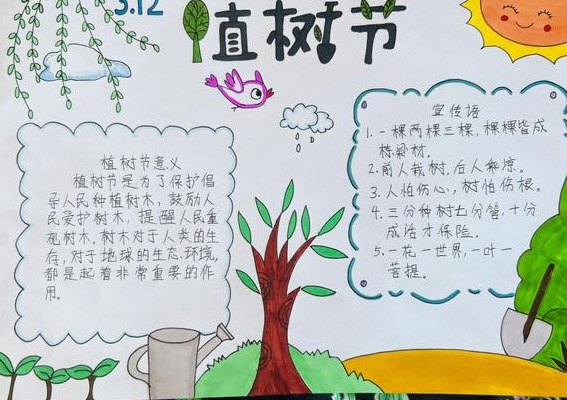 3.12
植树节
植树节意义
植树节是为了保护倡
导人民种植树木,鼓励人
民爱护树木,提醒人民重
视树木.树木对于人类的生
存,对于地球的生态环境,
都是起着非常重要的作
用。
宣传语
1.一棵两棵三棵,棵棵皆成
栋梁材.
2.前人栽树,后人乘凉.
3.人怕伤心,树怕伤根.
4.三分种树七分管,十分
成活才保险.
5.一花一世界,一叶一
菩提.